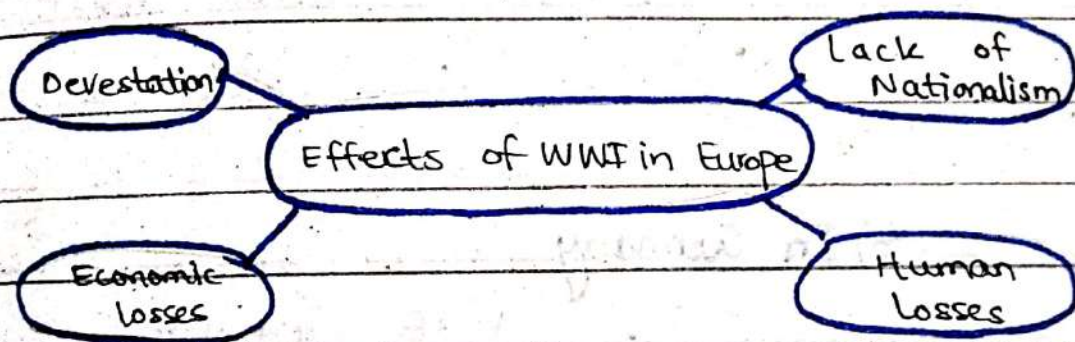 Devestation
Lack of
Nationalism
Effects of WWI in Europe
Economic
losses
Human
Losses